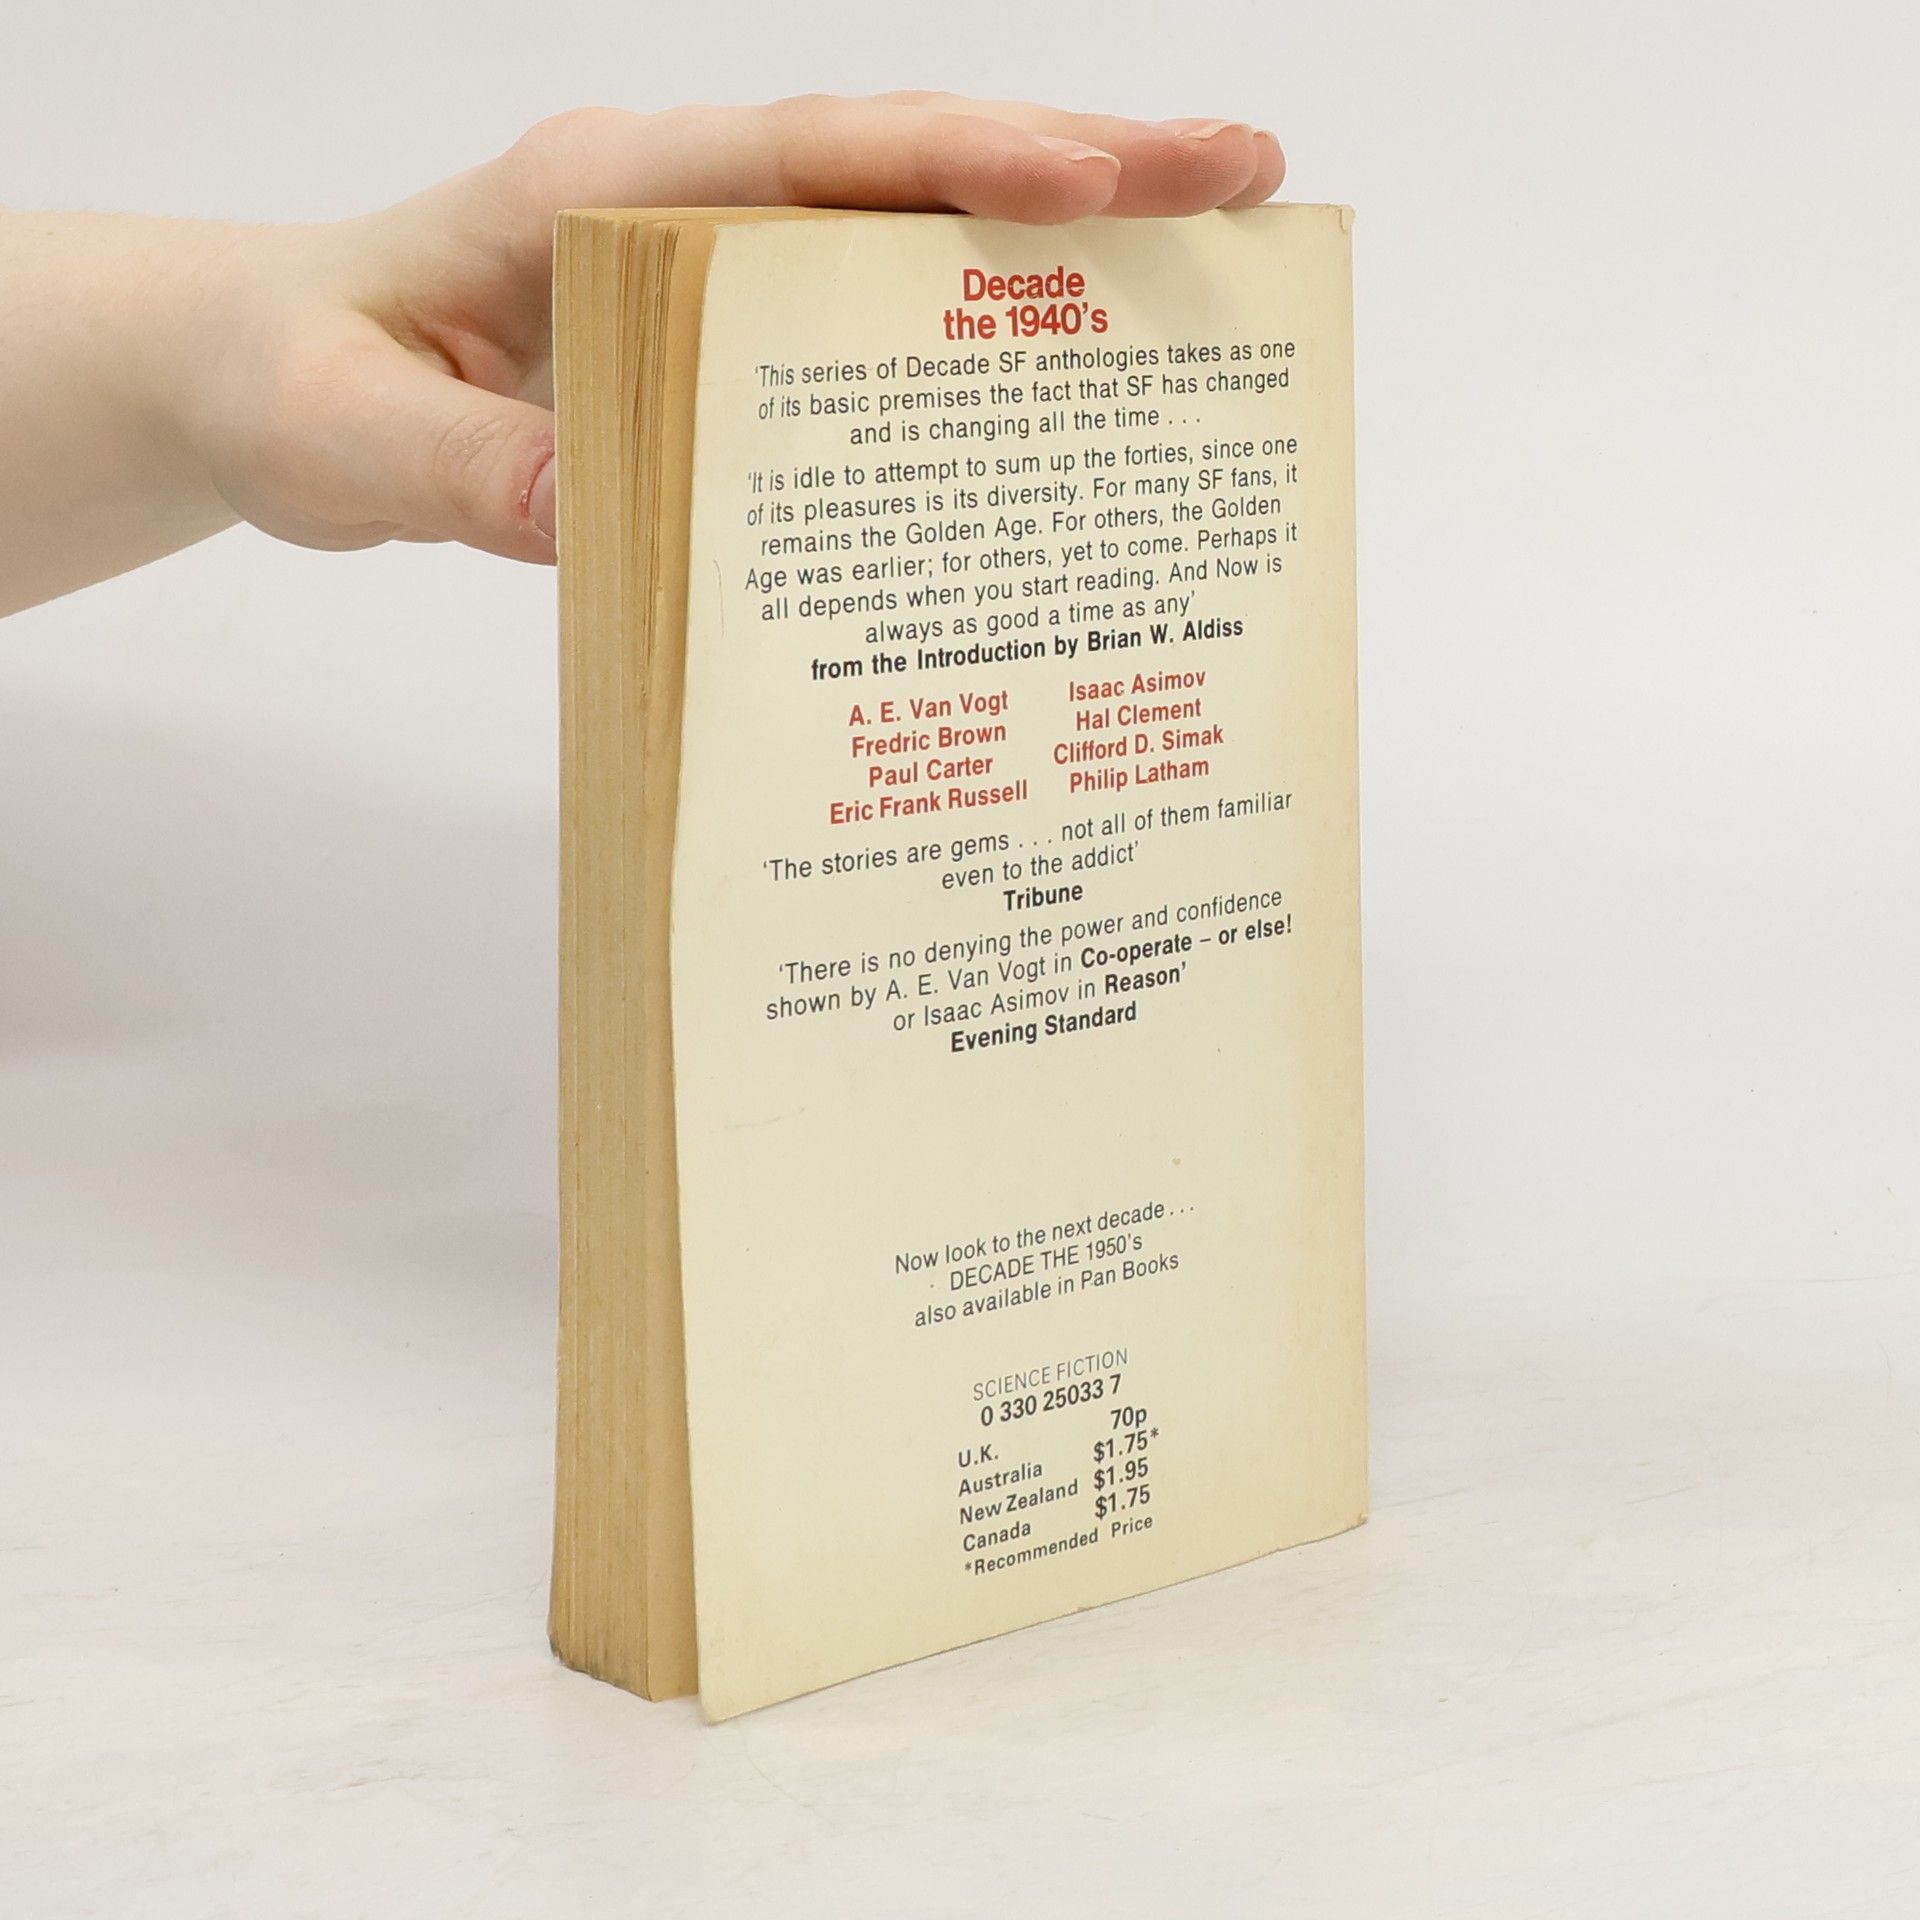 Decade
the 1940's
'This series of Decade SF anthologies takes as one
of its basic premises the fact that SF has changed
and is changing all the time . . .
'It is idle to attempt to sum up the forties, since one
of its pleasures is its diversity. For many SF fans, it
remains the Golden Age. For others, the Golden
Age was earlier; for others, yet to come. Perhaps it
all depends when you start reading. And Now is
always as good a time as any'
from the Introduction by Brian W. Aldiss
A. E. Van Vogt
Fredric Brown
Paul Carter
Eric Frank Russell
Isaac Asimov
Hal Clement
Clifford D. Simak
Philip Latham
'The stories are gems . . . not all of them familiar
even to the addict'
Tribune
'There is no denying the power and confidence
shown by A. E. Van Vogt in Co-operate – or else!
or Isaac Asimov in Reason'
Evening Standard
Now look to the next decade . . .
DECADE THE 1950's
also available in Pan Books
SCIENCE FICTION
0 330 25033 7
U.K. 70p
Australia $1.75*
New Zealand $1.95
Canada $1.75
*Recommended Price